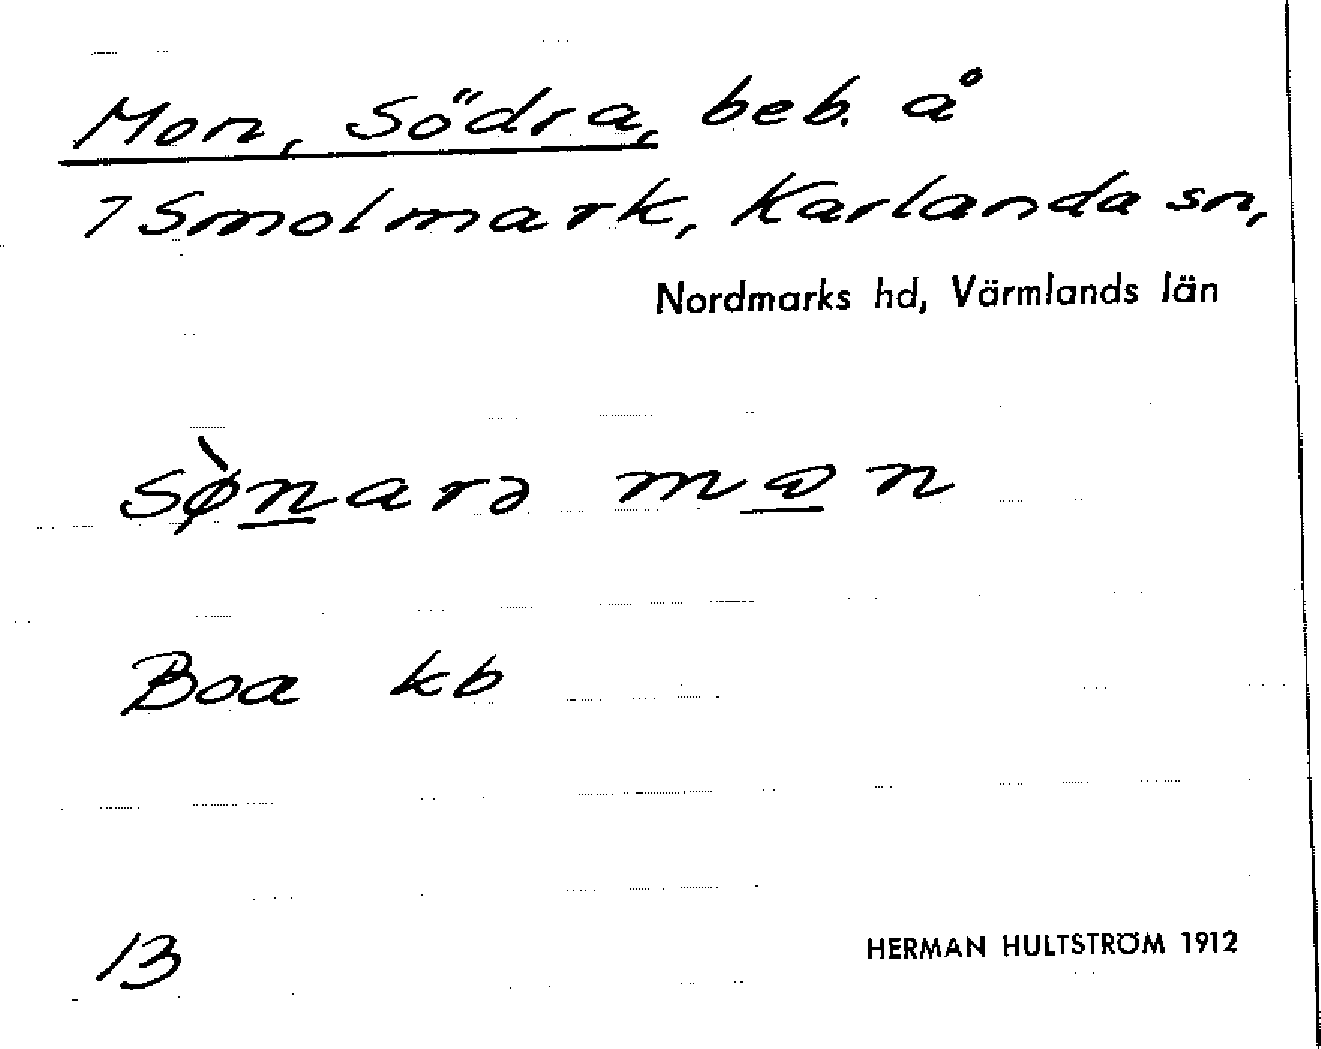 Mon, Södra, beb. å
7 Smolmark, Karlanda sn,
Nordmarks hd, Värmlands län
sø̀narə mɷn
Boa kb
13
HERMAN HULTSTRÖM 1912